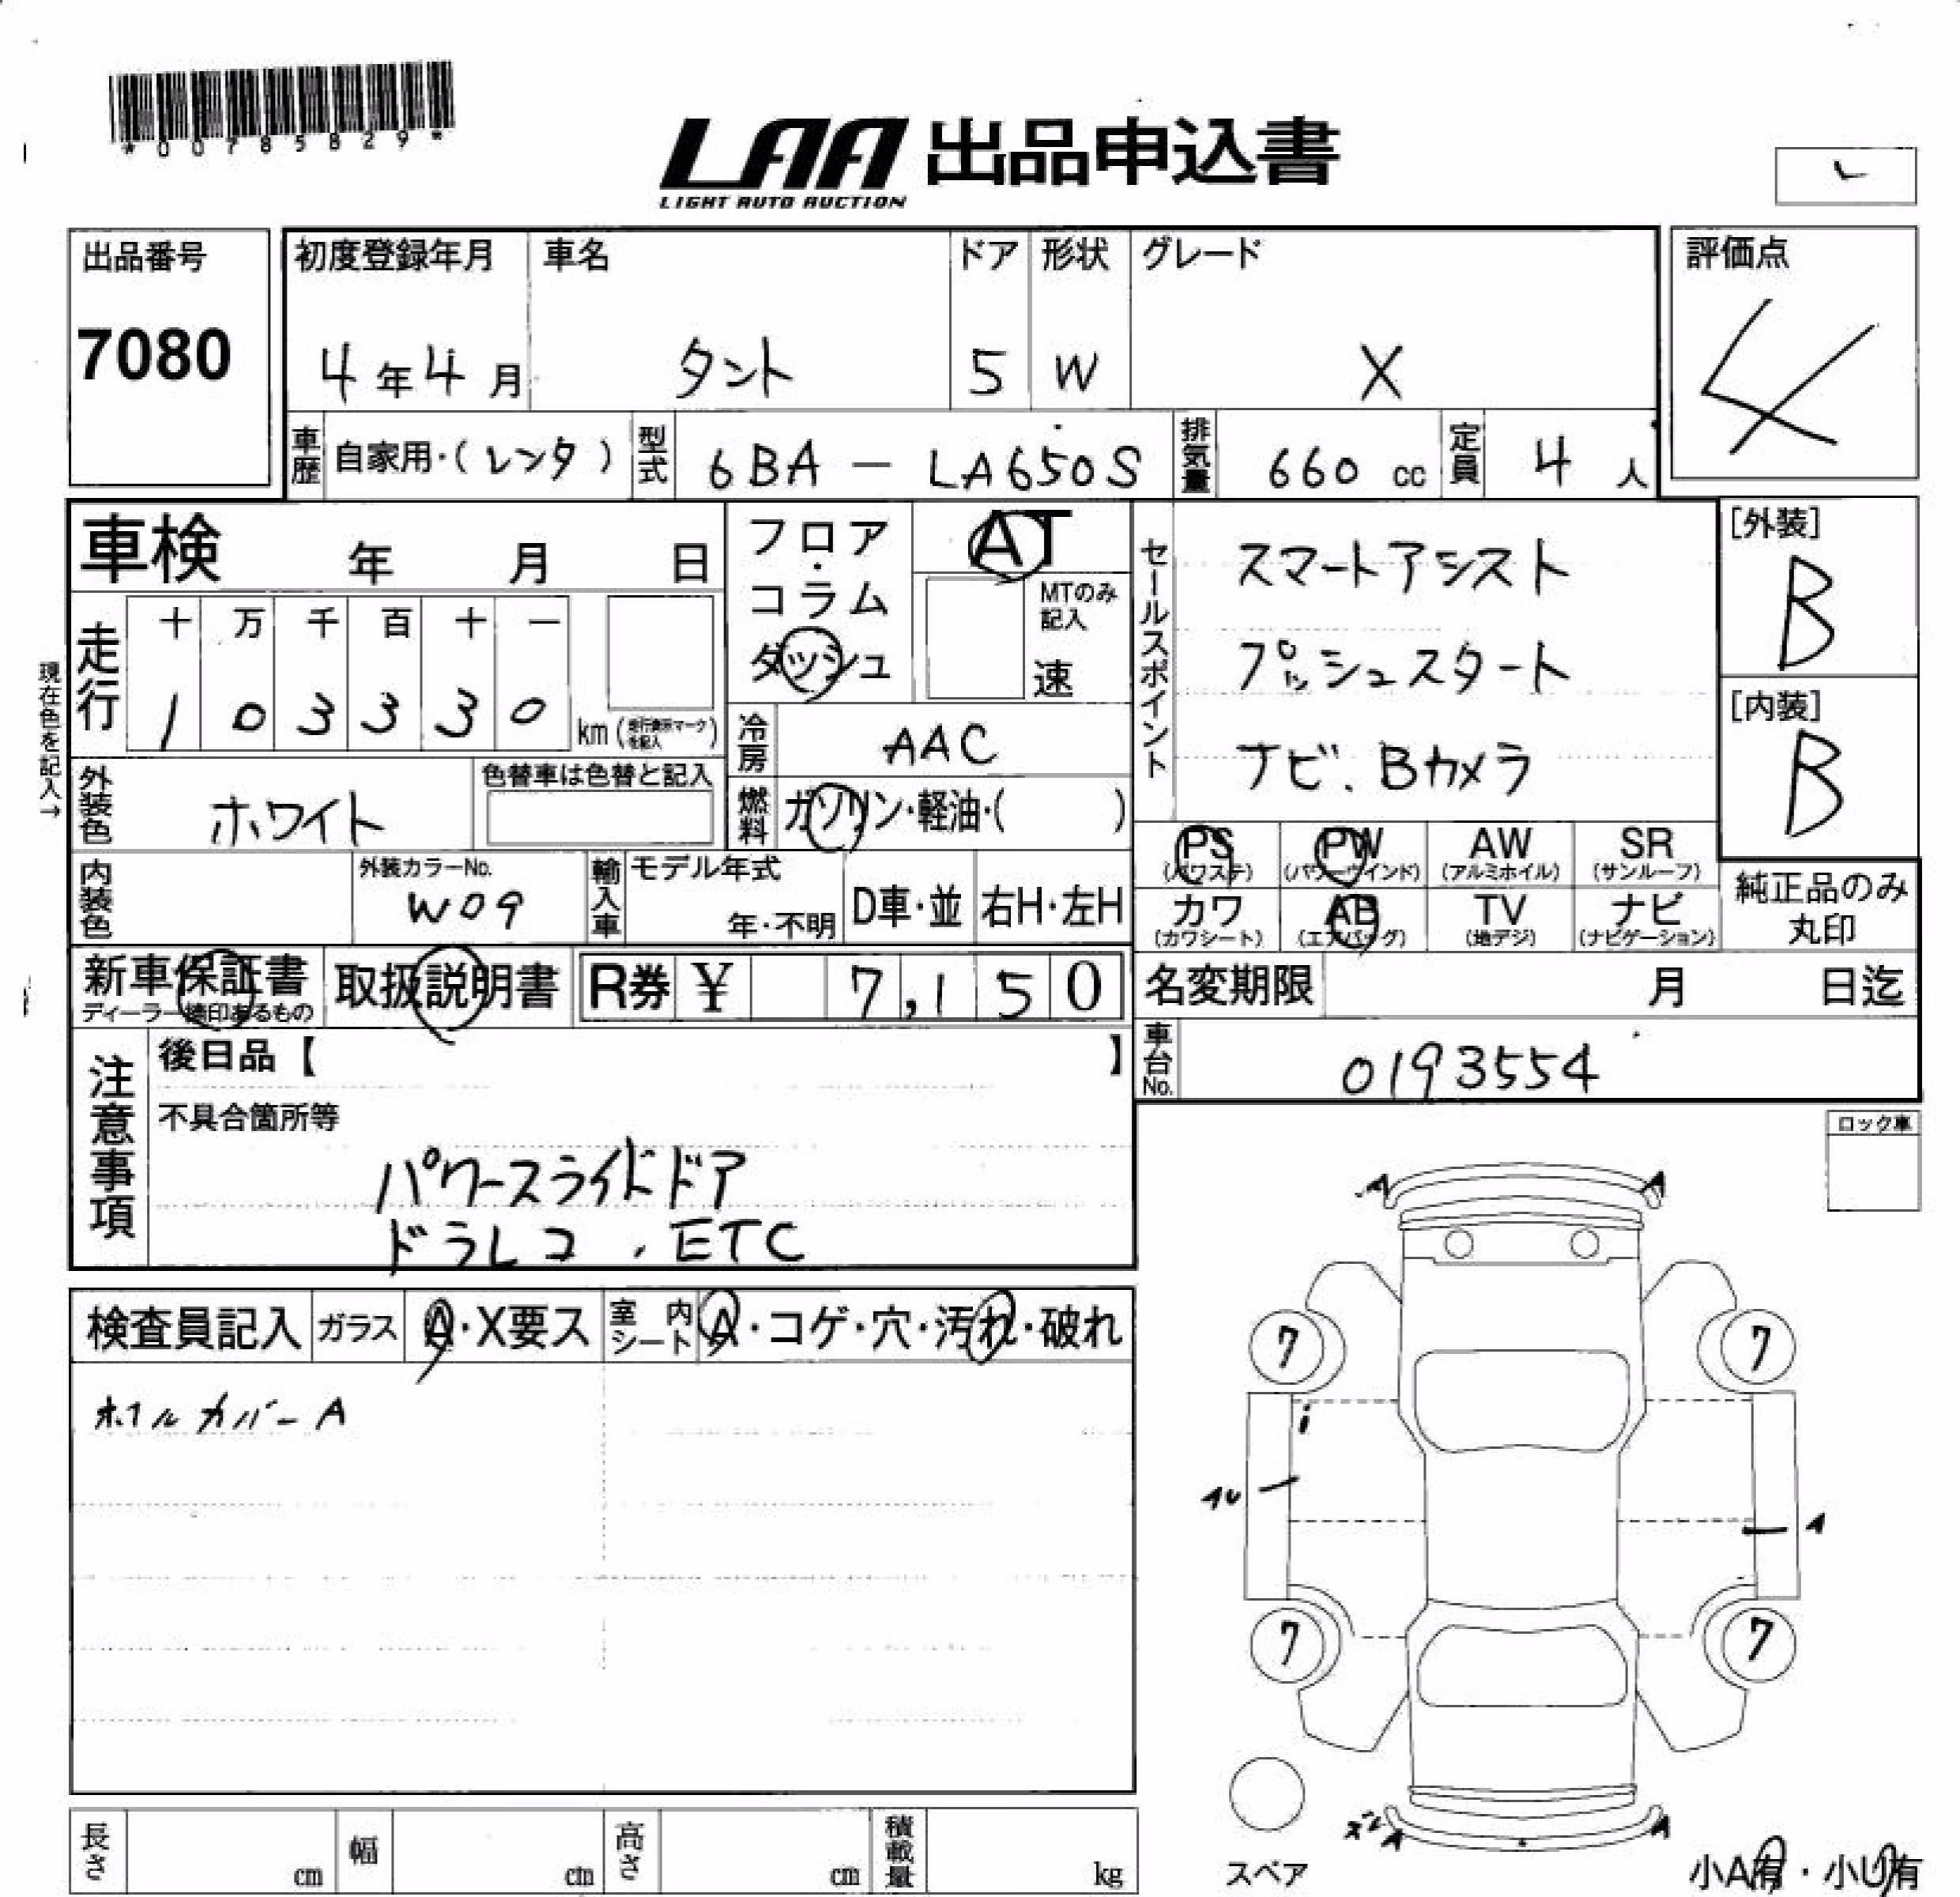 *00785829*
LAA 出品申込書
LIGHT AUTO AUCTION
出品番号
7080
初度登録年月
4年4月
車名
タント
ドア
5
形状
W
グレード
X
評価点
4
車歴
自家用・(レンタ)
型式
6BA - LA650S
排気量
660 cc
定員
4人
車検 年 月 日
走行
十 万 千 百 十 一
1 0 3 3 3 0
km
現在色を記入→
フロア・コラム
ダッシュ
AT
MTのみ
記入
速
セールスポイント
スマートアシスト
プッシュスタート
ナビ、Bカメラ
[外装]
B
[内装]
B
冷房
AAC
燃料
ガソリン・軽油・( )
外装色
ホワイト
色替車は色替と記入
内装色
外装カラーNo.
W09
輸入車
モデル年式
年・不明
D車・並
右H・左H
PS
(パワステ)
PW
(パワーウインド)
AW
(アルミホイル)
SR
(サンルーフ)
カワ
(カワシート)
AB
(エアバッグ)
TV
(地デジ)
ナビ
(ナビゲーション)
純正品のみ
丸印
新車保証書
ディーラー捺印あるもの
取扱説明書
R券 ¥ 7,150
名変期限 月 日迄
車台No.
0193554
注意事項
後日品【 】
不具合箇所等
パワースライドドア
ドラレコ、ETC
ロック車
検査員記入
ガラス
A・X要ス
室内シート
A・コゲ・穴・汚れ・破れ
ホイルカバーA
A A
7 7
i
A
7 7
A A
スペア
小A有・小U有
長さ cm
幅 cm
高さ cm
積載量 kg